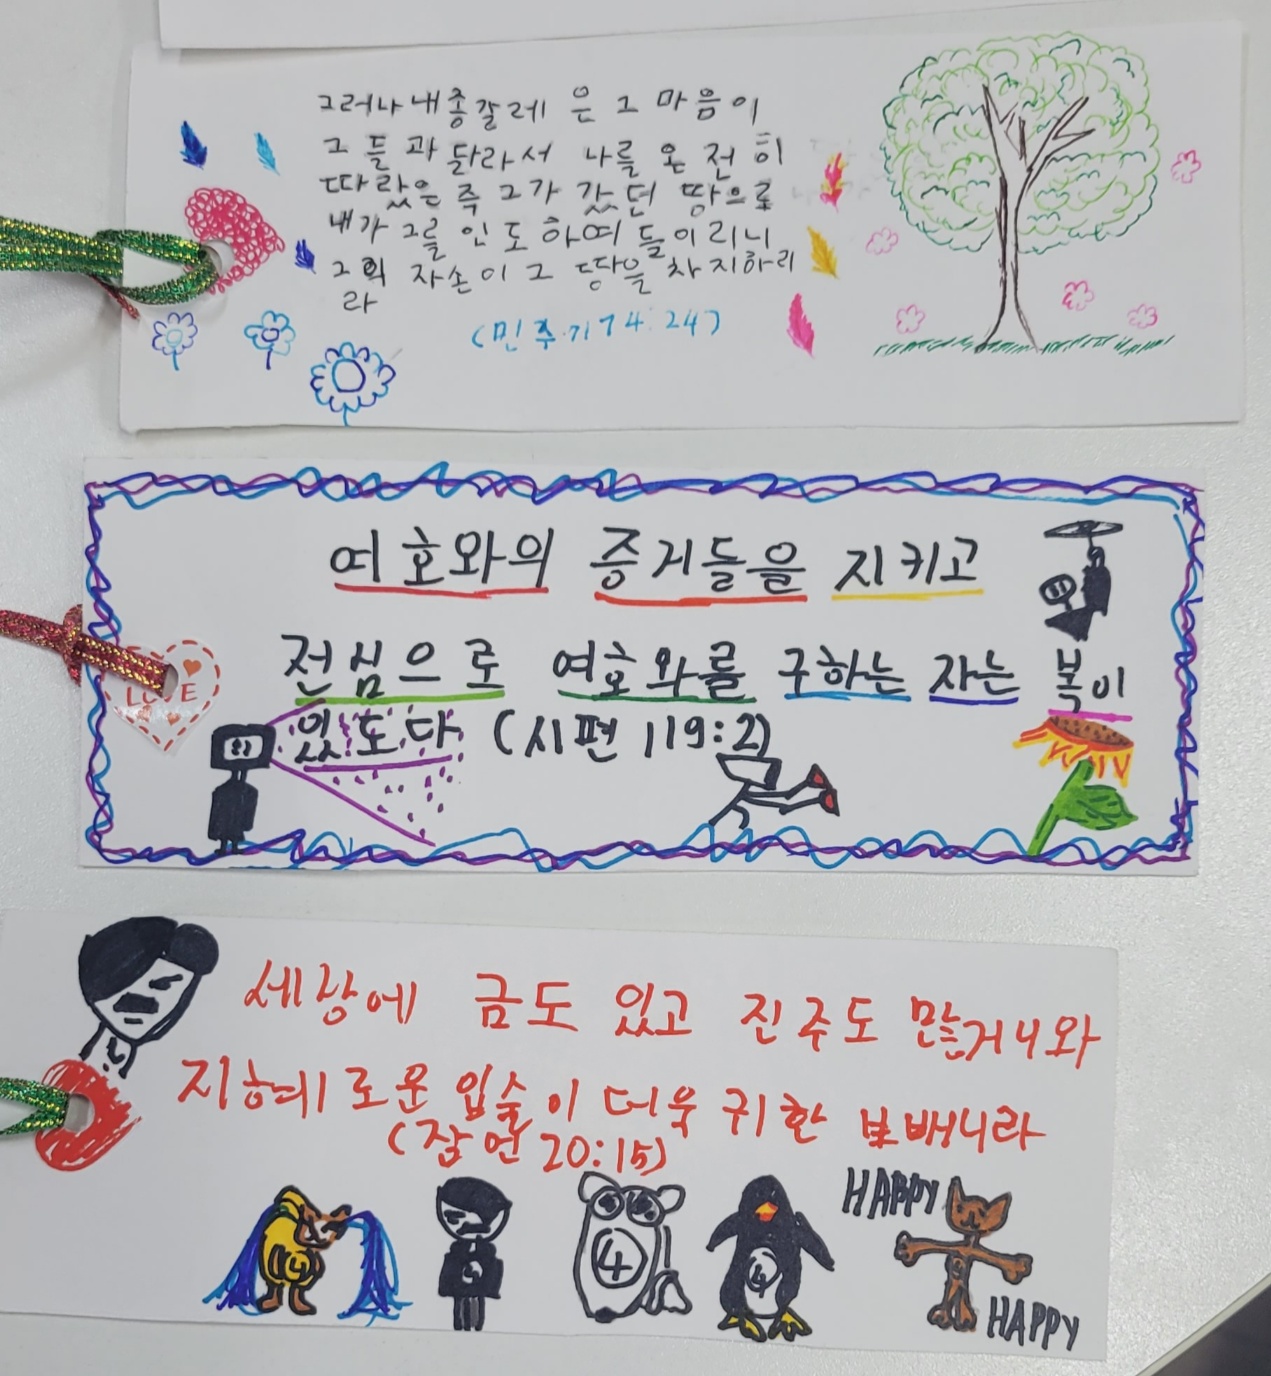 그러나 내 종 갈레은 그 마음이
그들과 달라서 나를 온전히
따랐은즉 그가 갔던 땅으로
내가 그를 인도하여 들이리니
그의 자손이 그 땅을 차지하리
라
(민수기 14:24)
여호와의 증거들을 지키고
LOVE
전심으로 여호와를 구하는 자는 복이
있도다 (시편 119:2)
세상에 금도 있고 진주도 많거니와
지혜로운 입술이 더욱 귀한 보배니라
(잠언 20:15)
HAPPY
4
4
4
4
HAPPY